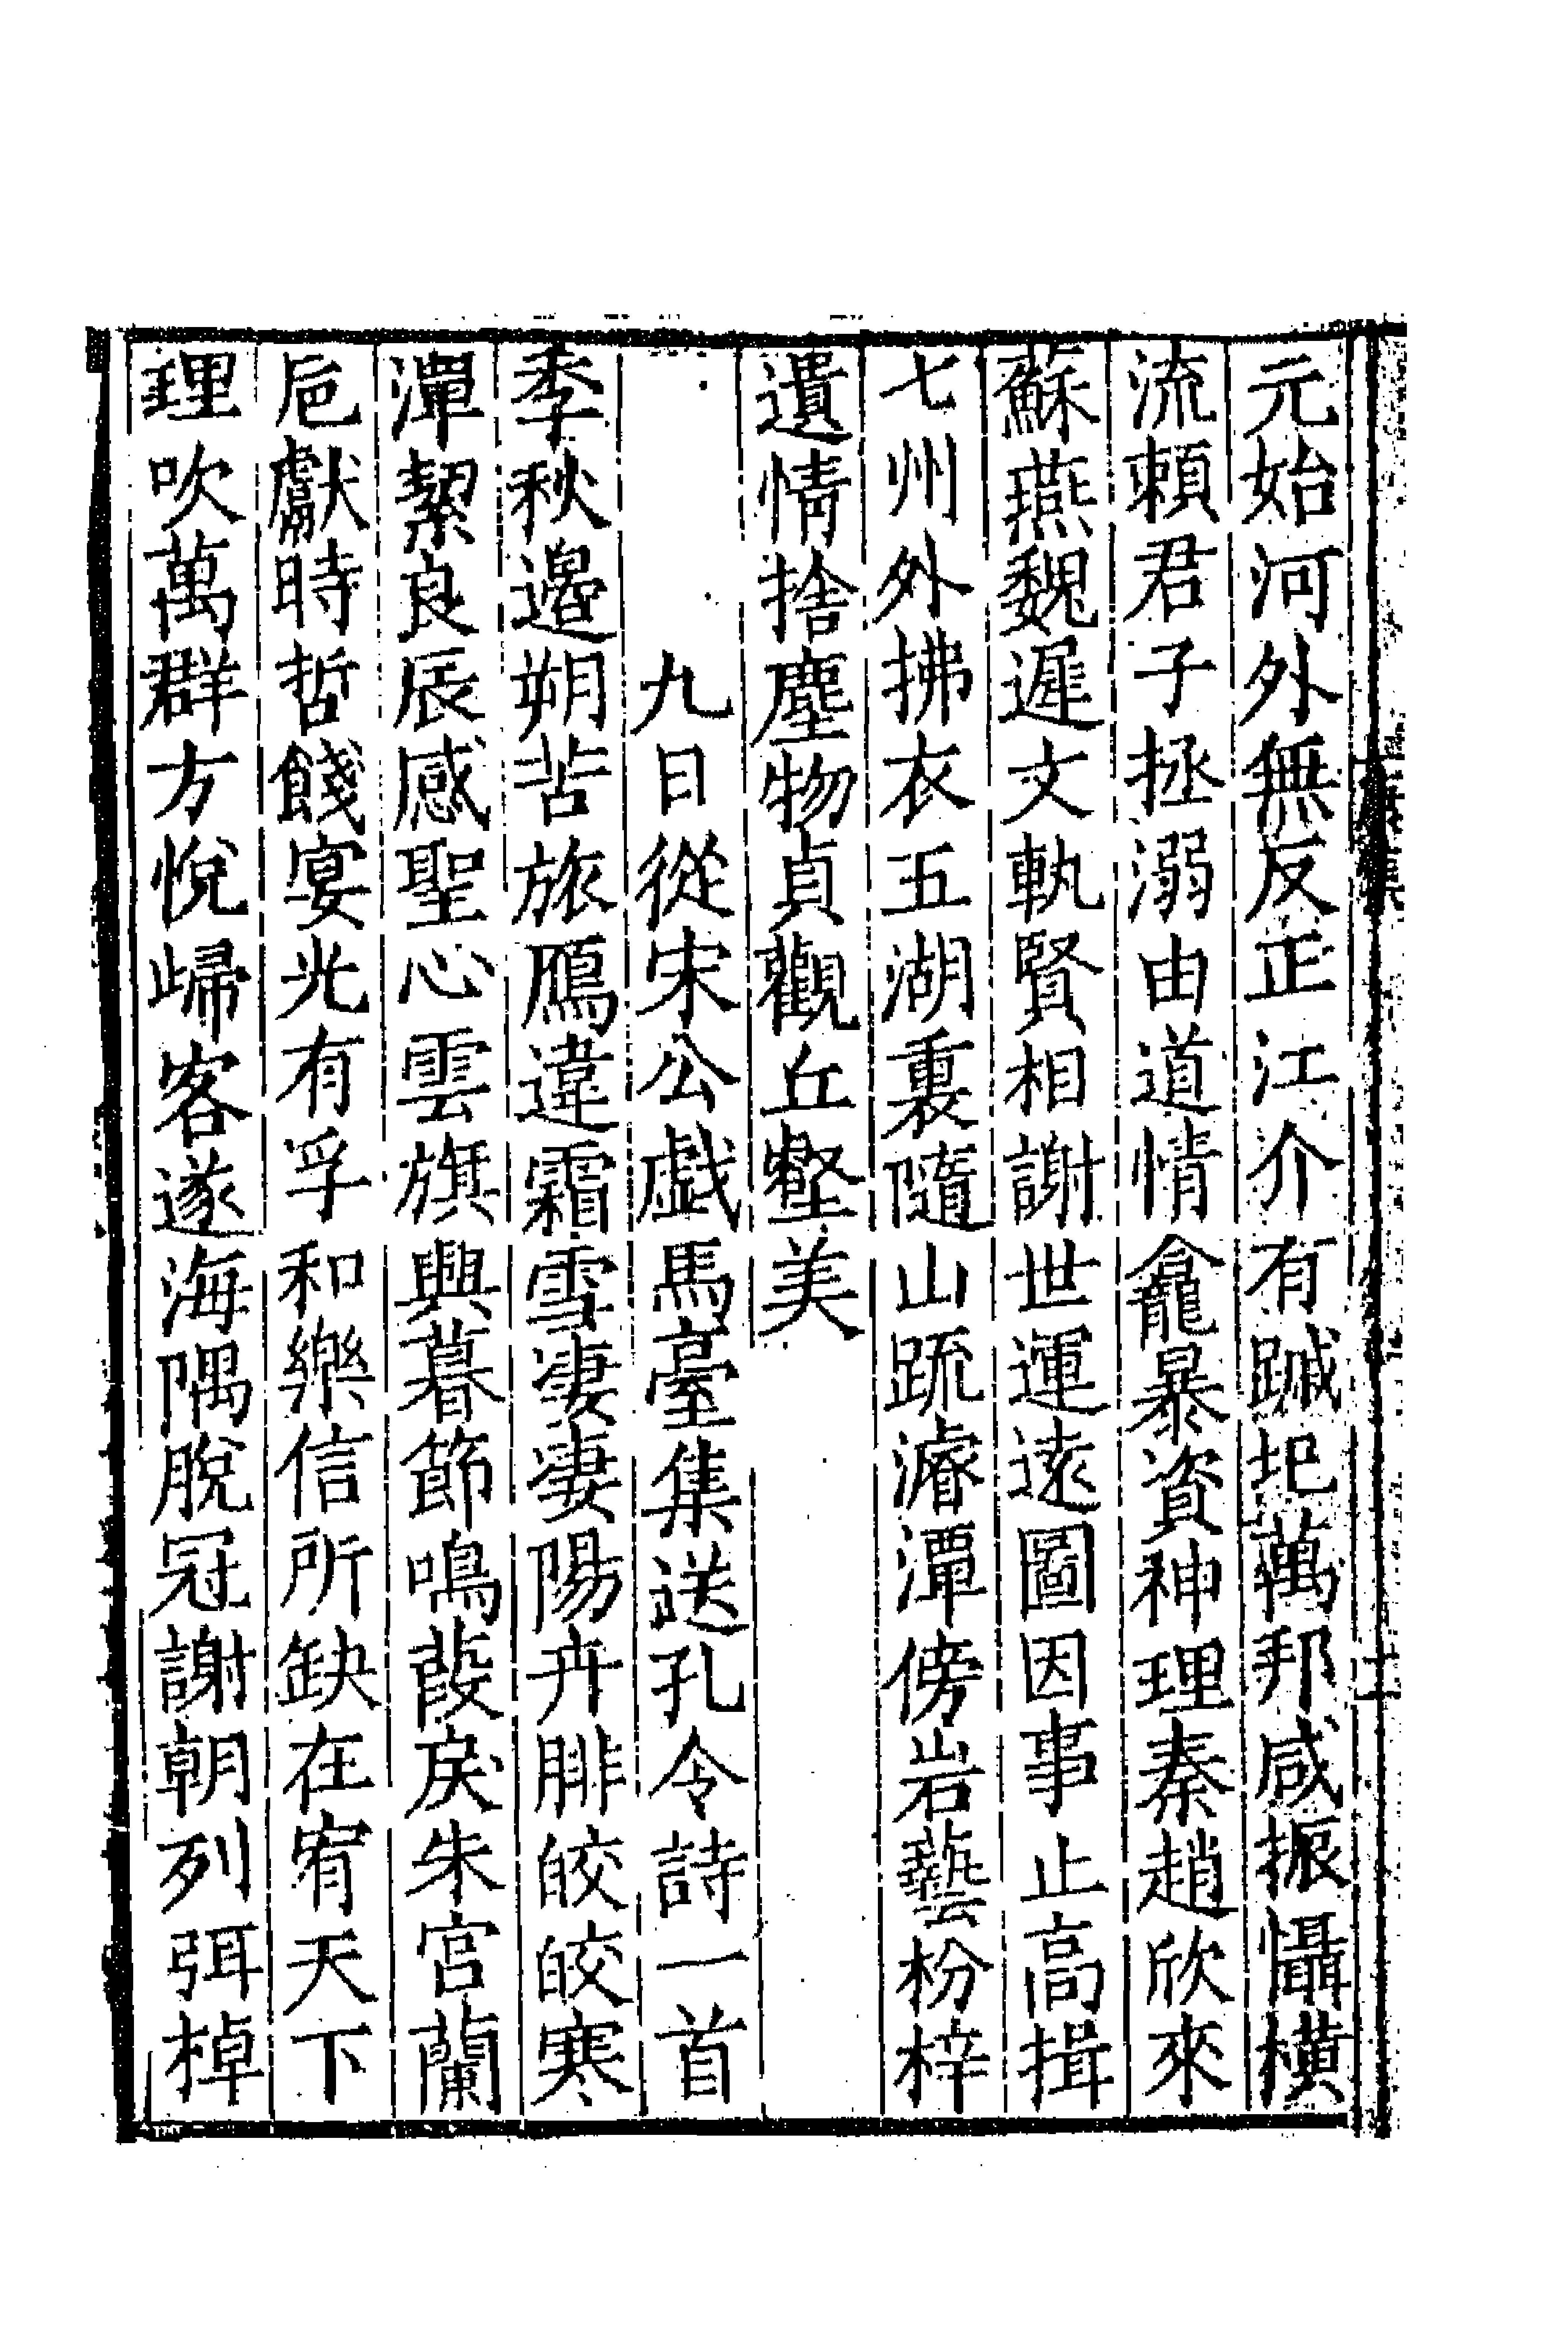 元始河外無反正江介有蹴圯萬邦咸振懾橫
流賴君子拯溺由道情龕暴資神理秦趙欣來
蘇燕魏遲文軌賢相謝世運遠圖因事止高揖
七州外拂衣五湖裏隨山疏濬潭傍岩藝枌梓
遺情捨塵物貞觀丘壑美
九日從宋公戯馬臺集送孔令詩一首
季秋邉朔苦旅鴈違霜雪淒淒陽卉腓皎皎寒
潭絜良辰感聖心雲旗興暮節鳴葭戾朱宮蘭
巵獻時哲餞宴光有孚和樂信所缺在宥天下
理吹萬群方悅歸客遂海隅脫冠謝朝列弭棹